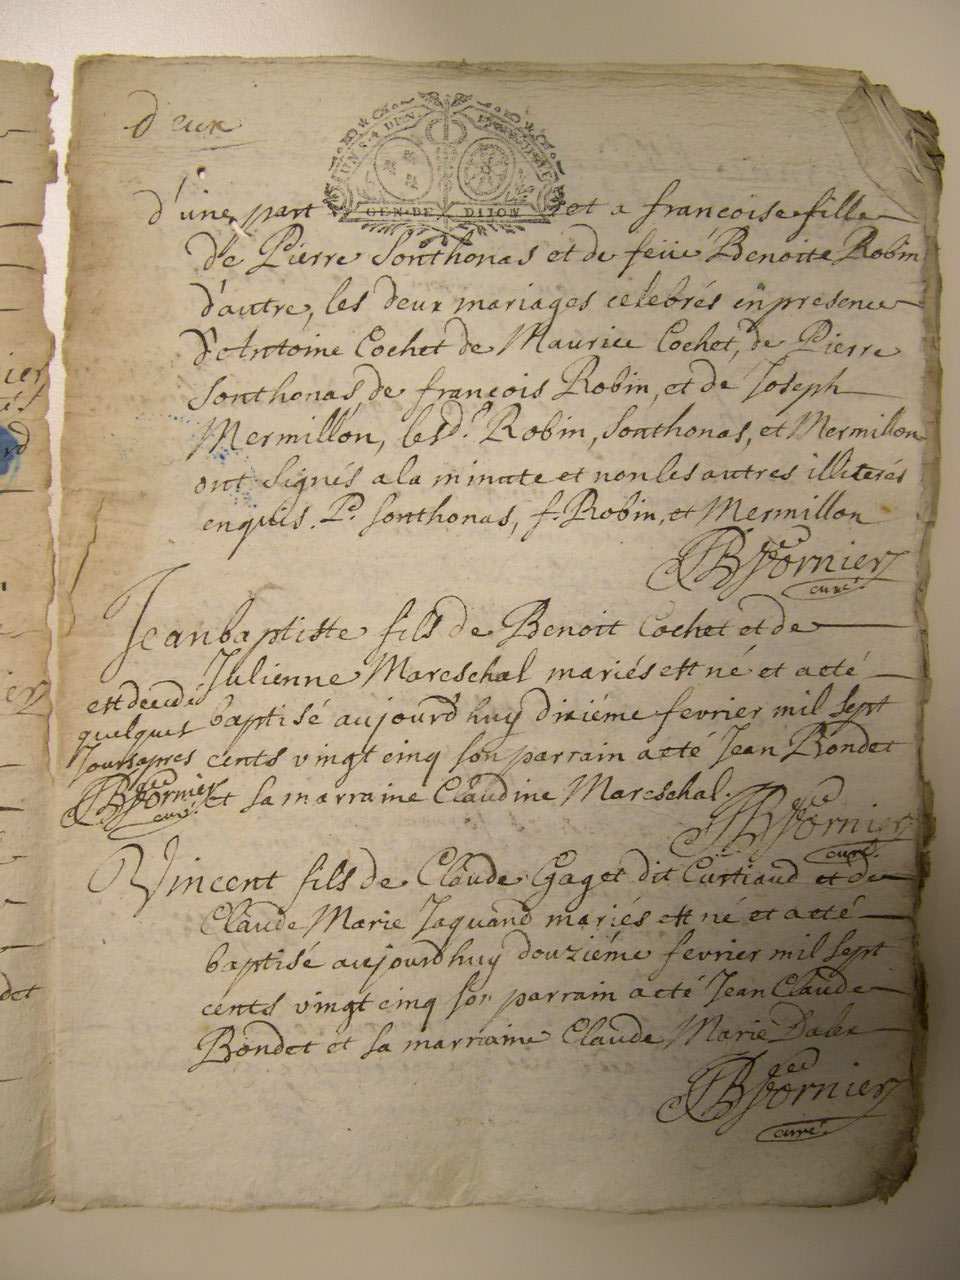 deux
GEN. DE DIJON
d'une part et a francoise fille
de Pierre Sonthonas et de feüe Benoite Robin
d'autre, les deux mariages celebrés en presence
d'Antoine Cochet de Maurice Cochet, de Pierre
Sonthonas de françois Robin, et de Joseph
Mermillon, lesd.t Robin, Sonthonas, et Mermillon
ont signés a la minute et non les autres illiterés
enquis. P. Sonthonas, f. Robin, et Mermillon
Fornier
curé
Jean baptiste fils de Benoit Cochet et de
Julienne Mareschal mariés est né et a eté
baptisé aujourd'huy dixiéme fevrier mil sept
cents vingt cinq son parrain a eté Jean Bondet
et sa marraine Claudine Mareschal.
est decedé
quelques
jours apres
Fornier
curé
Fornier
curé
Vincent fils de Claude Gaget dit Curtiaud et de
Claude Marie Jaquand mariés est né et a eté
baptisé aujourd'huy douziéme fevrier mil sept
cents vingt cinq son parrain a eté Jean Claude
Bondet et sa marraine Claude Marie
Fornier
curé